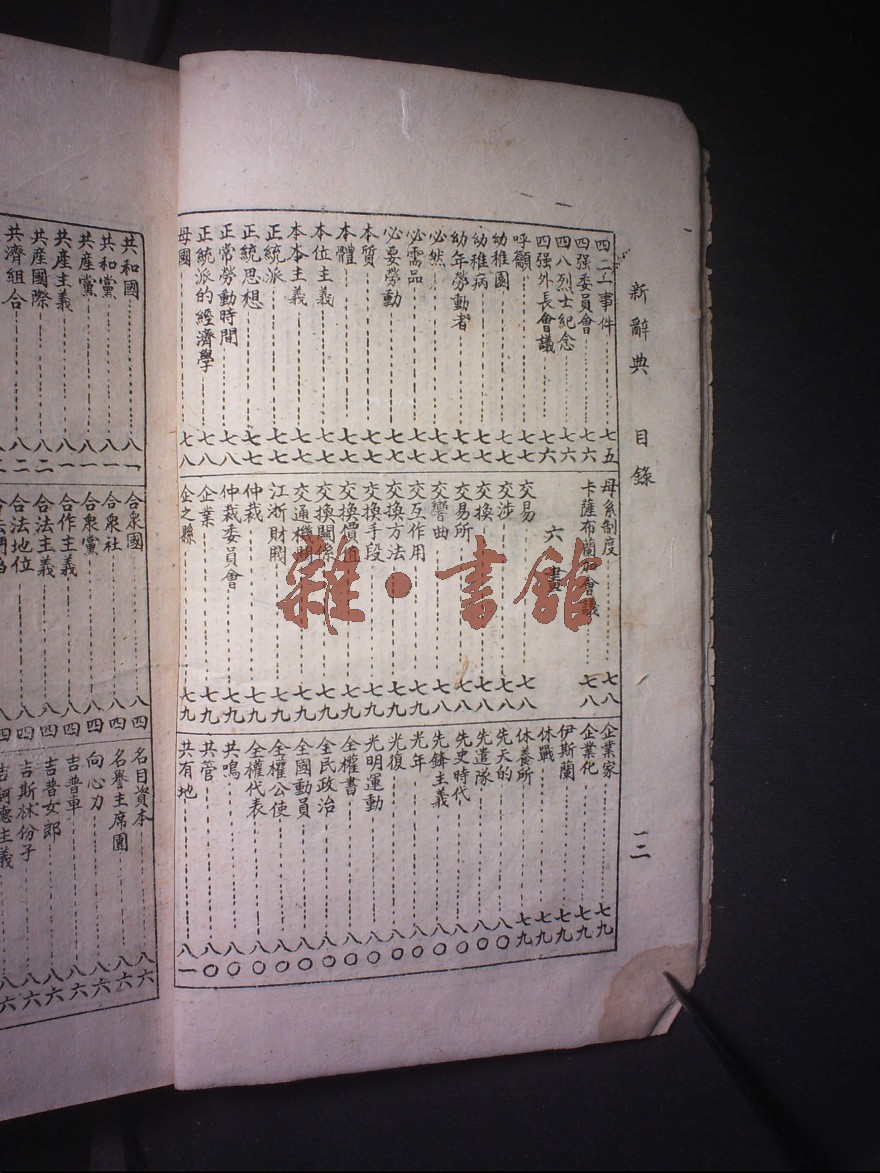 新辭典 目錄 三
四二一事件 七五
四强委員會 七六
四八烈士紀念 七六
四强外長會議 七六
呼籲 七七
幼稚園 七七
幼稚病 七七
幼年勞動者 七七
必然 七七
必需品 七七
必要勞動 七七
本質 七七
本體 七七
本位主義 七七
本本主義 七七
正統派 七七
正統思想 七七
正常勞動時間 七八
正統派的經濟學 七八
母國 七八
母系制度 七八
卡薩布蘭加會議 七八
六畫
交易 七八
交涉 七八
交換 七八
交易所 七八
交響曲 七八
交互作用 七九
交換方法 七九
交換手段 七九
交換價值 七九
交換關係 七九
交通機關 七九
江浙財閥 七九
仲裁 七九
仲裁委員會 七九
企業 七九
企之縣 七九
企業家 七九
企業化 七九
伊斯蘭 七九
休戰 七九
休養所 七九
先天的 八〇
先遣隊 八〇
先史時代 八〇
先鋒主義 八〇
光年 八〇
光復 八〇
光明運動 八〇
全權書 八〇
全民政治 八〇
全國動員 八〇
全權公使 八〇
全權代表 八〇
共鳴 八〇
共管 八〇
共有地 八一
共和國 八一
共和黨 八一
共產黨 八一
共產主義 八一
共產國際 八二
共濟組合 八二
合衆國 八四
合衆社 八四
合衆黨 八四
合作主義 八四
合法主義 八四
合法地位 八四
名目資本 八六
名譽主席團 八六
向心力 八六
吉普車 八六
吉普女郎 八六
吉斯林份子 八六
雜·書館